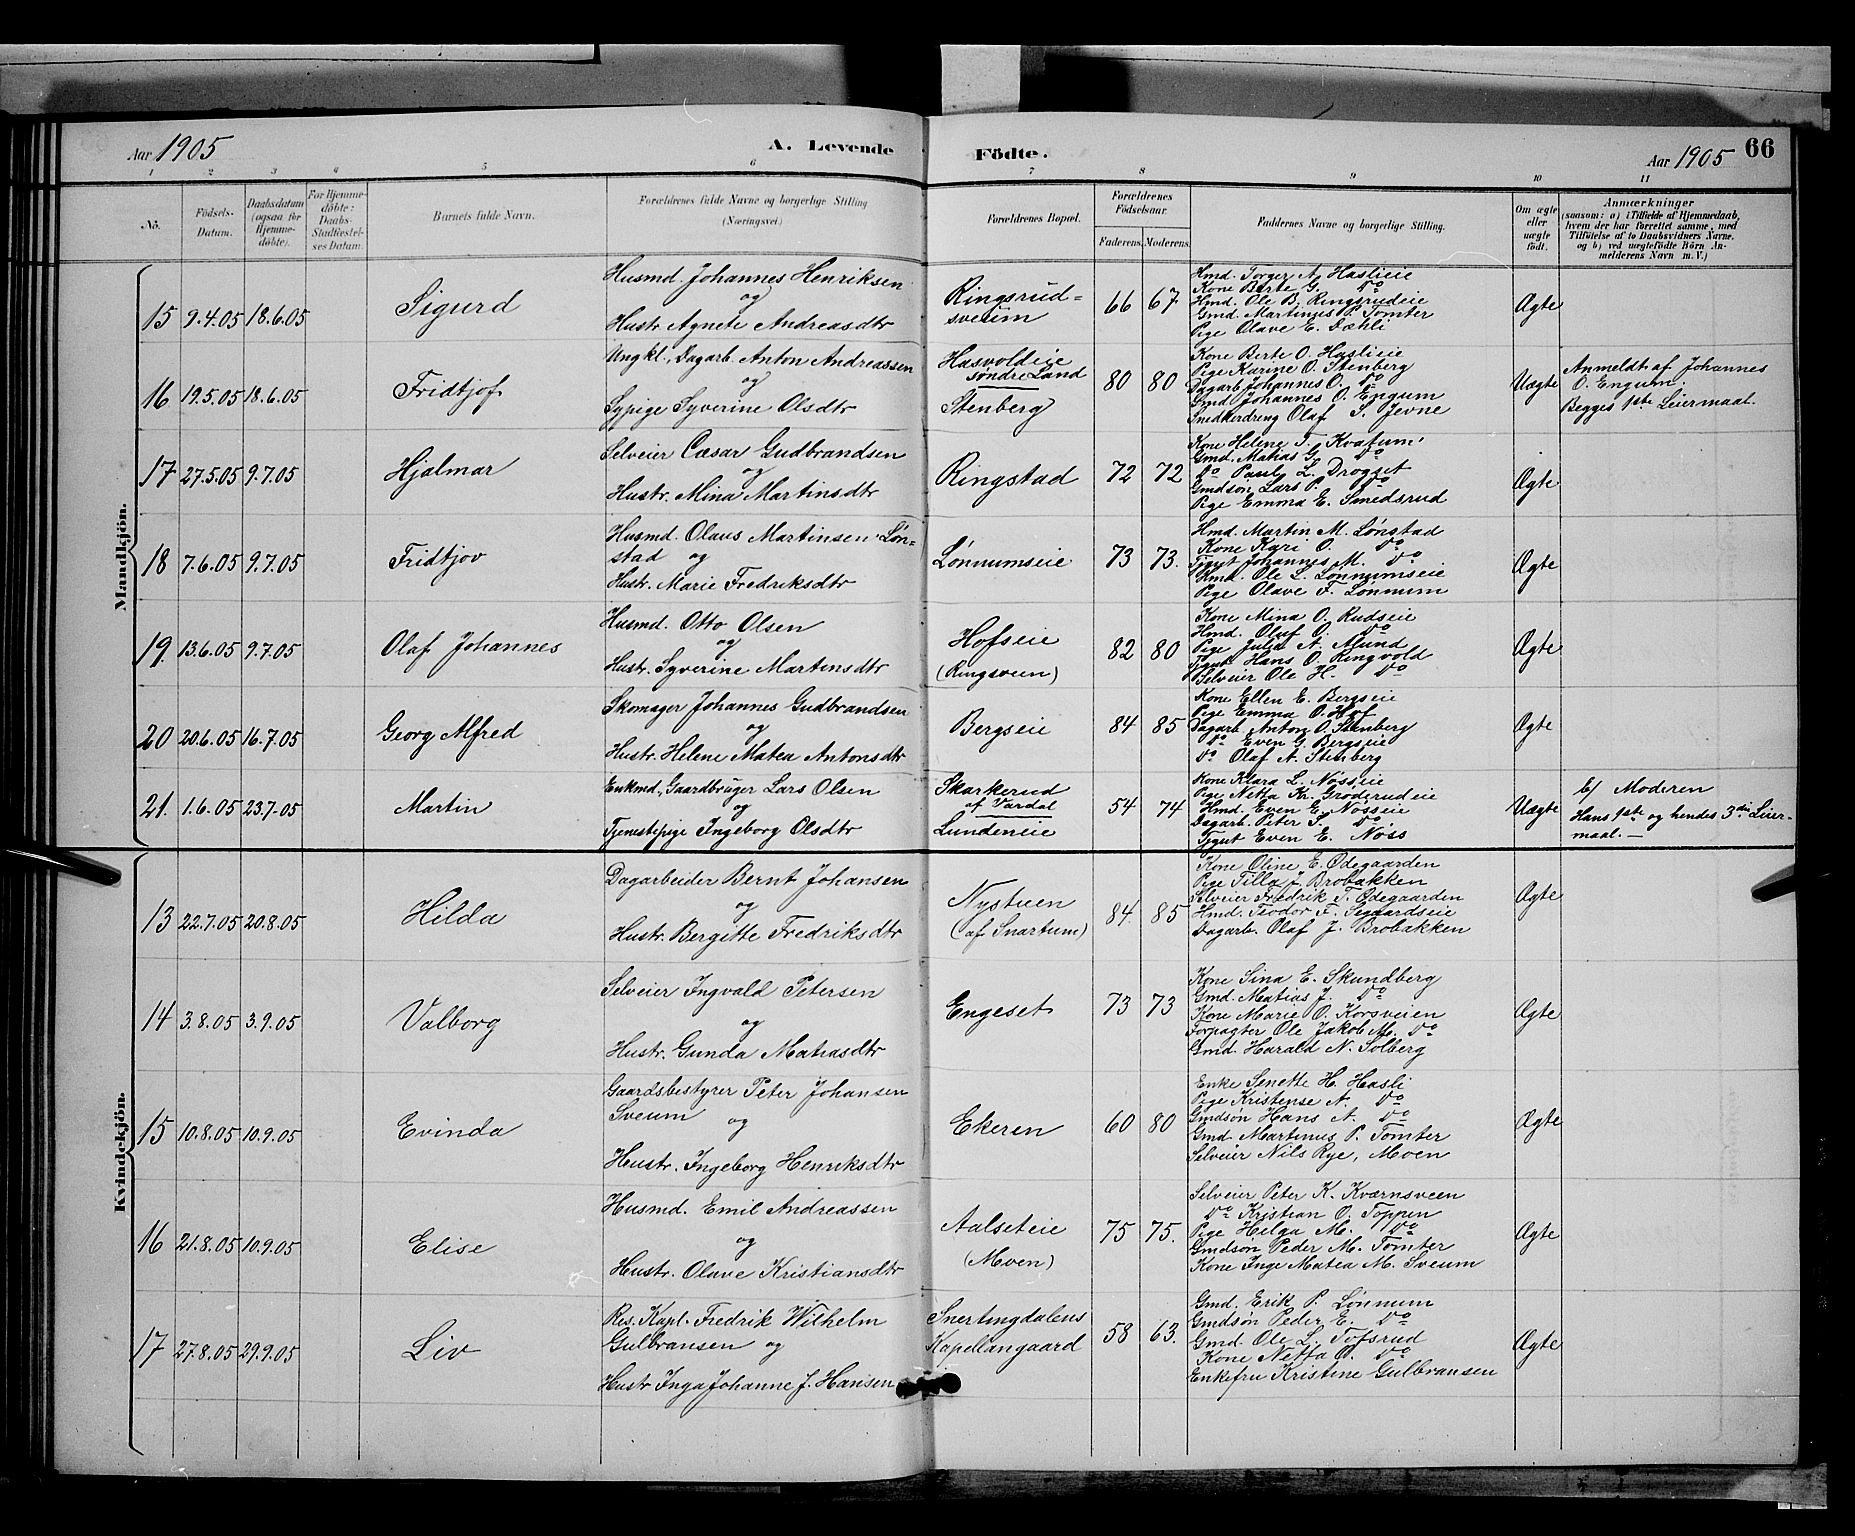 Aar 1905
A. Levende
Födte.
Aar 1905
66
1 2 3 4 5 6 7 8 9 10 11
No.
Födsels-Datum.
Daabsdatum (ogsaa for Hjemmedöbte).
For Hjemmedöbte: Daabs-Stadfæstelses Datum.
Barnets fulde Navn.
Forældrenes fulde Navne og borgerlige Stilling (Næringsvei)
Forældrenes Bopæl.
Forældrenes Födselsaar.
Faderens. Moderens.
Faddernes Navne og borgerlige Stilling.
Om ægte eller uægte födt.
Anmærkninger
(saasom: a) i Tilfælde af Hjemmedaab,
hvem der har forrettet samme, med
Tilföielse af to Daabsvidners Navne,
og b) ved uægtefödte Börn Anmelderens Navn m. V.)
Mandkjön.
15 9.4.05 18.6.05 Sigurd
Husmd. Johannes Henriksen
og
Hustr. Agnete Andreasdtr
Ringsrud-
sveum
66 67
Hmd. Torger A. Haslieie
Kone Berte G. Do
Hmd. Ole B. Ringsrudeie
Gmd. Martinus P. Tomter
Pige Olave E. Dæhli
Ægte
16 19.5.05 18.6.05 Fridtjof
Ungkl., Dagarb. Anton Andreassen
og
Sypige Syverine Olsdtr
Hasvoldeie
søndre Land
Stenberg
80 80
Kone Berte O. Haslieie
Pige Karine O. Stenberg
Dagarb Johannes O. Do
Gmd Johannes O. Engum
Snedkerdreng Olaf S. Jevne
Uægte
Anmeldt af Johannes
O. Engum.
Begges 1ste Leiermaal.
17 27.5.05 9.7.05 Hjalmar
Selveier Cæsar Gudbrandsen
og
Hustr. Mina Martinsdtr
Ringstad
72 72
Kone Helene T. Kvatum
Gmd. Matias G. Do
Do Paul L. Drogset
Gmdsøn Lars P. Do
Pige Emma E. Smedsrud
Ægte
18 7.6.05 9.7.05 Fridtjov
Husmd. Olaus Martinsen Løn-
stad og
Hustr. Marie Fredriksdtr
Lønnumseie
73 73.
Hmd. Martin M. Lønstad
Kone Kari O. Do
Tjgut Johannes M. Do
Hmd. Ole L. Lønnumseie
Pige Olave F. Lønnum
Ægte
19. 13.6.05 9.7.05 Olaf Johannes
Husmd. Otto Olsen
og
Hustr. Syverine Martensdtr
Hofseie
(Ringsveen)
82 80
Kone Mina O. Rudseie
Hmd. Oluf O. Do
Pige Julia A. Alund
Tjgut Hans O. Ringvold
Selveier Ole H. Do
Ægte
20 20.6.05 16.7.05 Georg Alfred
Skomager Johannes Gudbrandsen
og
Hustr. Helene Matea Antonsdtr
Bergseie
84 85
Kone Ellen E. Bergseie
Pige Emma O. Hof
Dagarb Anton O. Stenberg
Do Even G. Bergseie
Do Olaf A. Stenberg
Ægte
21. 1.6.05 23.7.05 Martin
Enkmd., Gaardbruger Lars Olsen
og
Tjenestepige Ingeborg Olsdtr
Skarkerud
af Vardal
Lundeneie
54 74
Kone Klara L. Nøsseie
Pige Netta Kr. Grøderudeie
Hmd. Even E. Nøsseie
Dagarb. Peter S. Do
Tjgut Even E. Nøss
Uægte
b/ Moderen
Hans 1ste og hendes 3die Leier-
maal. —
Kvindekjön.
13 22.7.05 20.8.05 Hilda
Dagarbeider Bernt Johansen
og
Hustr. Bergitte Fredriksdtr
Nystuen
(af Snartum)
84. 85
Kone Oline E. Ødegaarden
Pige Tilla J. Brobakken
Selveier Fredrik T. Ødegaarden
Hmd. Teodor F. Segaardseie
Dagarb. Olaf J. Brobakken
Ægte
14 3.8.05 3.9.05 Valborg
Selveier Ingvald Petersen
og
Hustr. Gunda Matiasdtr
Engeset
73 73
Kone Sina E. Skundberg
Gmd. Matias J. Do
Kone Marie O. Korsveien
Forpagter Ole Jakob M. Do
Gmd. Harald N. Solberg
Ægte
15 10.8.05 10.9.05 Evinda
Gaardsbestyrer Peter Johansen
Sveum og
Hustr. Ingeborg Henriksdtr
Ekeren
60 80
Enke Senette H. Hasli
Pige Kristense A. Do
Gmdsøn Hans A. Do
Gmd. Martinus P. Tomter
Selveier Nils Rye, Moen
Ægte
16 21.8.05 10.9.05 Elise
Husmd. Emil Andreassen
og
Hustr. Olave Kristiansdtr
Aalseteie
(Moen)
75 75.
Selveier Peter K. Kværnsveen
Do Kristian O. Toppen
Pige Helga M. Do
Gmdsøn Peder M. Tomter
Kone Inge Matea M. Sveum
Ægte
17 27.8.05 29.9.05 Liv
Res. Kapl. Fredrik Wilhelm
Gulbransen og
Hustr Inga Johanne J. Hansen
Snertingdalens
Kapellangaard
58 63.
Gmd. Erik P. Lønnum
Gmdsøn Peder E. Do
Gmd. Ole L. Tofsrud
Kone Netta O. Do
Enkefru Kristine Gulbransen
Ægte